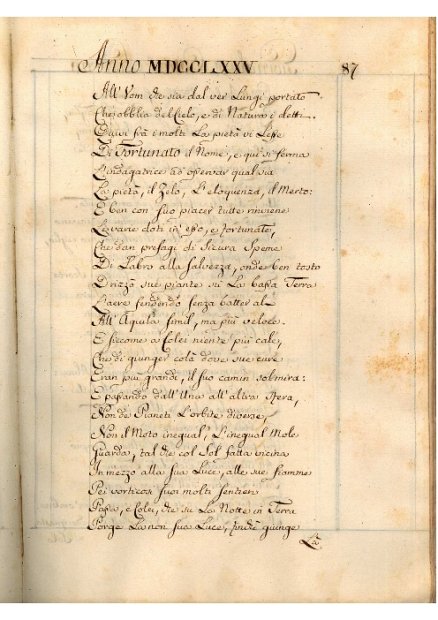 Anno MDCCLXXV 87
All' Vom che sia dal ver Lungi portato
Che obblia del Cielo, e di Natura i detti.
Quivi frà i molti La pietà vi Lesse
Di Fortunato il Nome, e quì si ferma
Indagatrice ad osservar qual sia
La pietà, il Zelo, L'eloquenza, il Merto:
E ben con suo piacer tutte rinviene
Le varie doti in esso, e fortunate,
Che dan presagi di sicura Speme
Di Labro alla salvezza, onde ben tosto
Drizzò sue piante sù La bassa Terra
L'aere fendendo senza batter ale
All' Aquila simil, ma più veloce.
E siccome a Colei niente più cale,
Che di giunger colà dove sue cure
Eran più grandi, il suo camin sol mira:
E passando dall' Una all' altra Sfera,
Non de Pianeti L'orbite diverse,
Non il Moto inegual, L'inegual Mole
Guarda, tal che col Sol fatta vicina
In mezzo alla sua Luce, alle sue fiamme
Pei vorticosi suoi molti sentieri
Passa, e Colei, che sù La Notte in Terra
Porge La non sua Luce, indi giunge